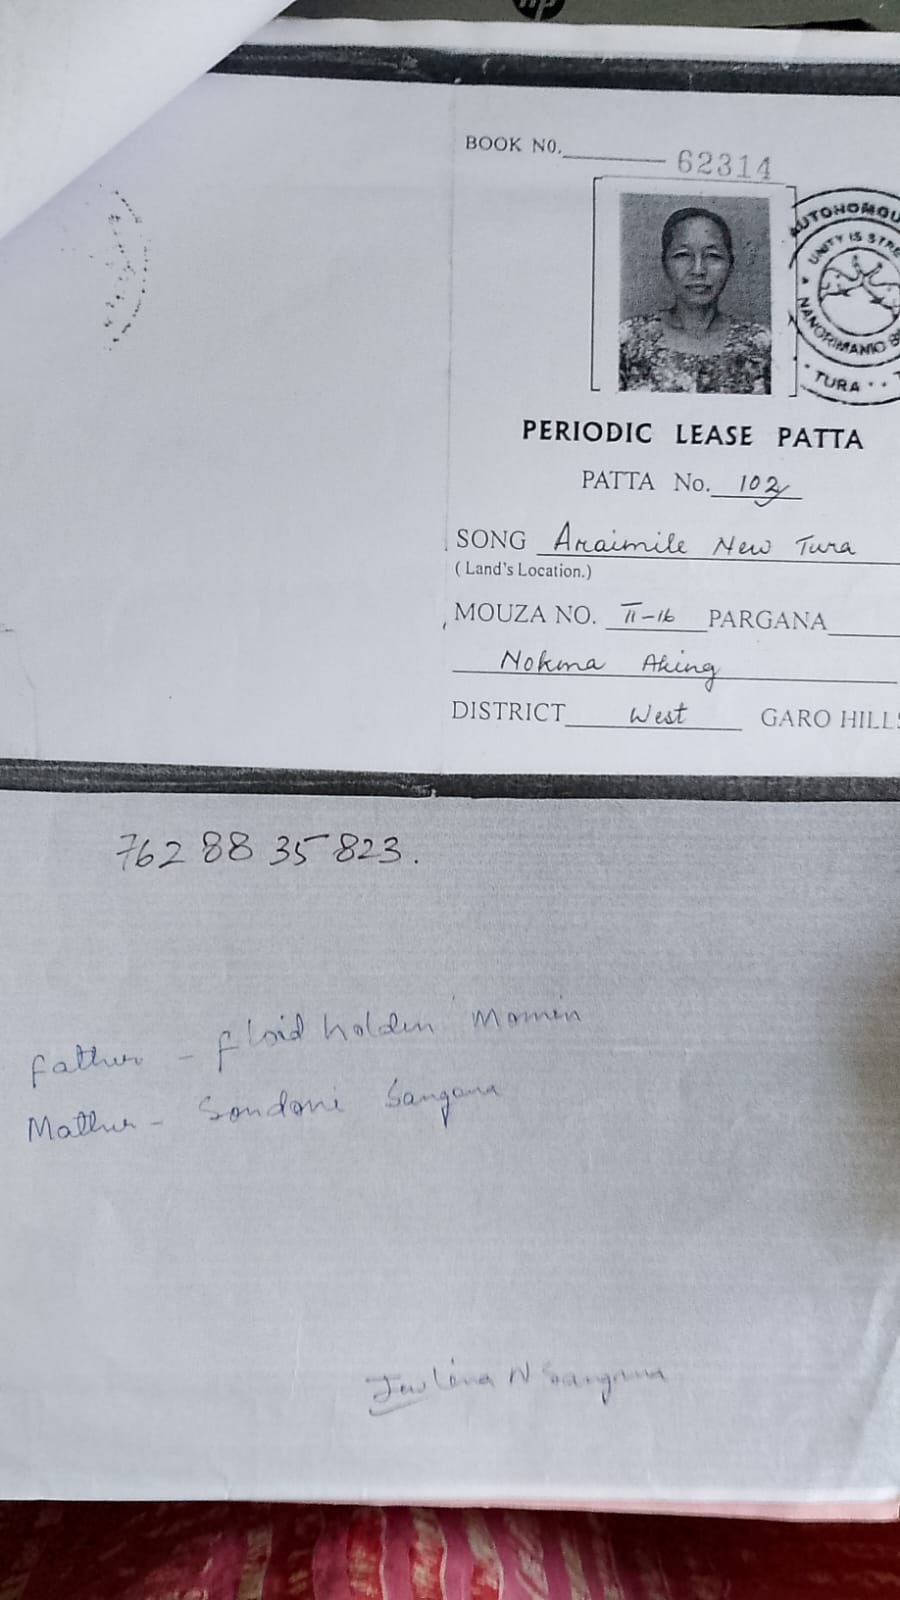 hp
BOOK NO. 62314
AUTONOMOU
UNITY IS STRE
TURA
PERIODIC LEASE PATTA
PATTA No. 102
SONG Araimile New Tura
( Land's Location.)
MOUZA NO. II-16 PARGANA
Nokma Aking
DISTRICT West GARO HILLS
762 88 35 823.
Father - floid holden Momin
Mother - Sondoni Sangma
N Sangma